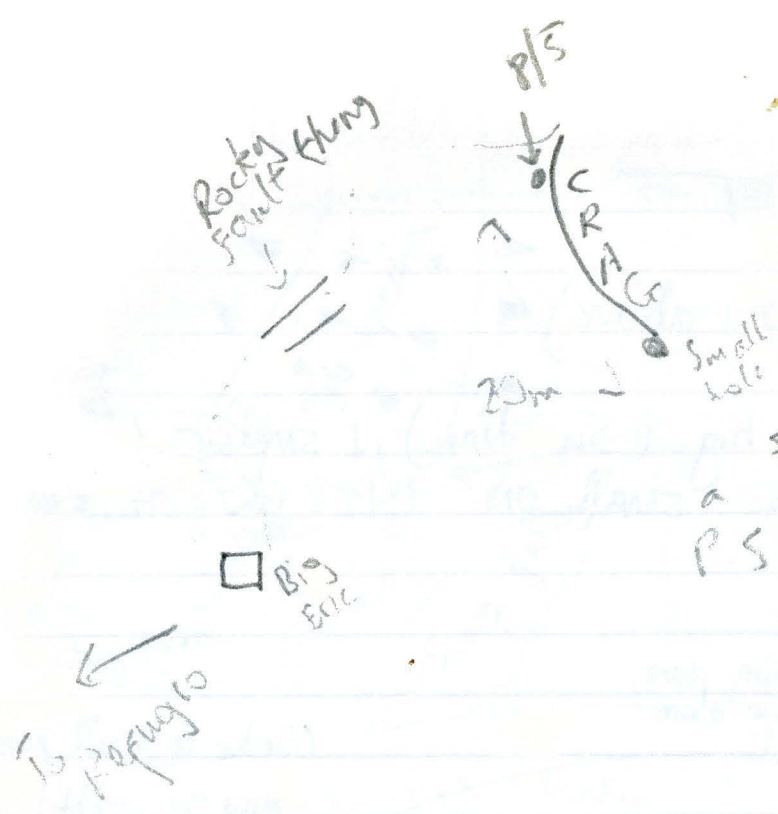 8/5
Rocky
Fault thing
CRAG
20m
Small
hole
a
P S
Big
Eric
To Refugio